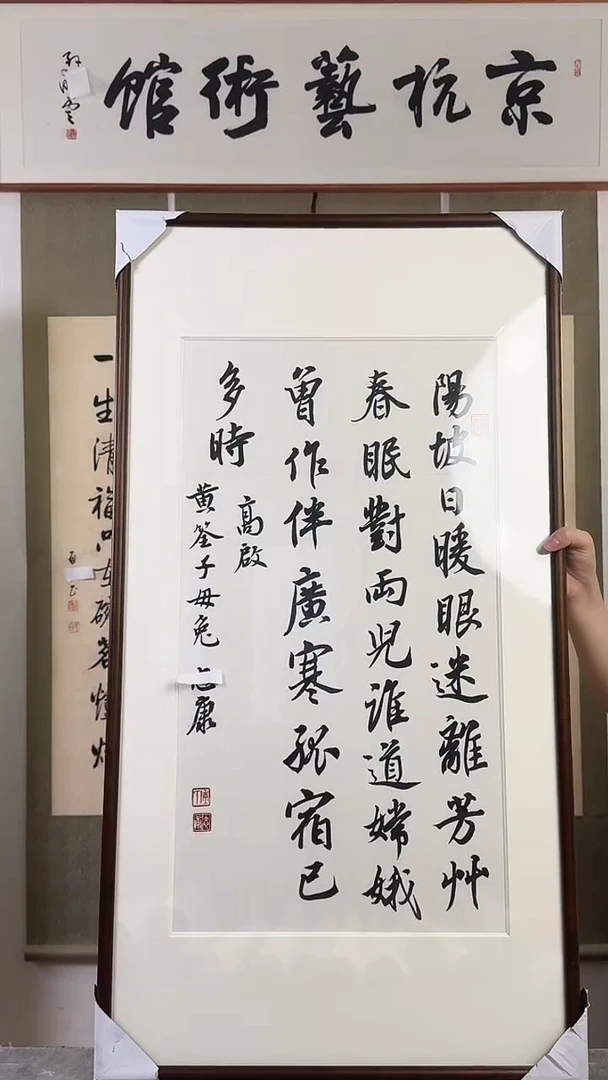 京杭藝術館
陽坡日暖眼迷離芳艸
春眠對兩兒誰道嫦娥
曾作伴廣寒孤宿已
多時
高啟
黄筌子母兔 康
一生清福